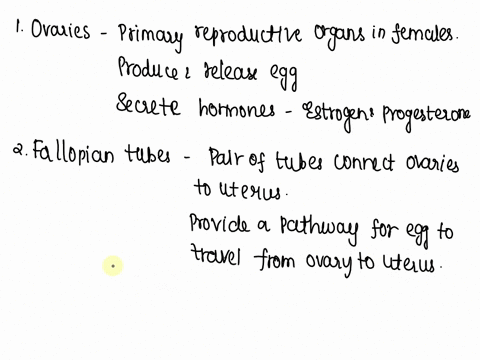 1. Ovaries - Primary reproductive organs in females.
Produce & release egg
Secrete hormones - Estrogen & Progesterone
2. Fallopian tubes - Pair of tubes connect ovaries
to uterus.
Provide a pathway for egg to
travel from ovary to uterus.